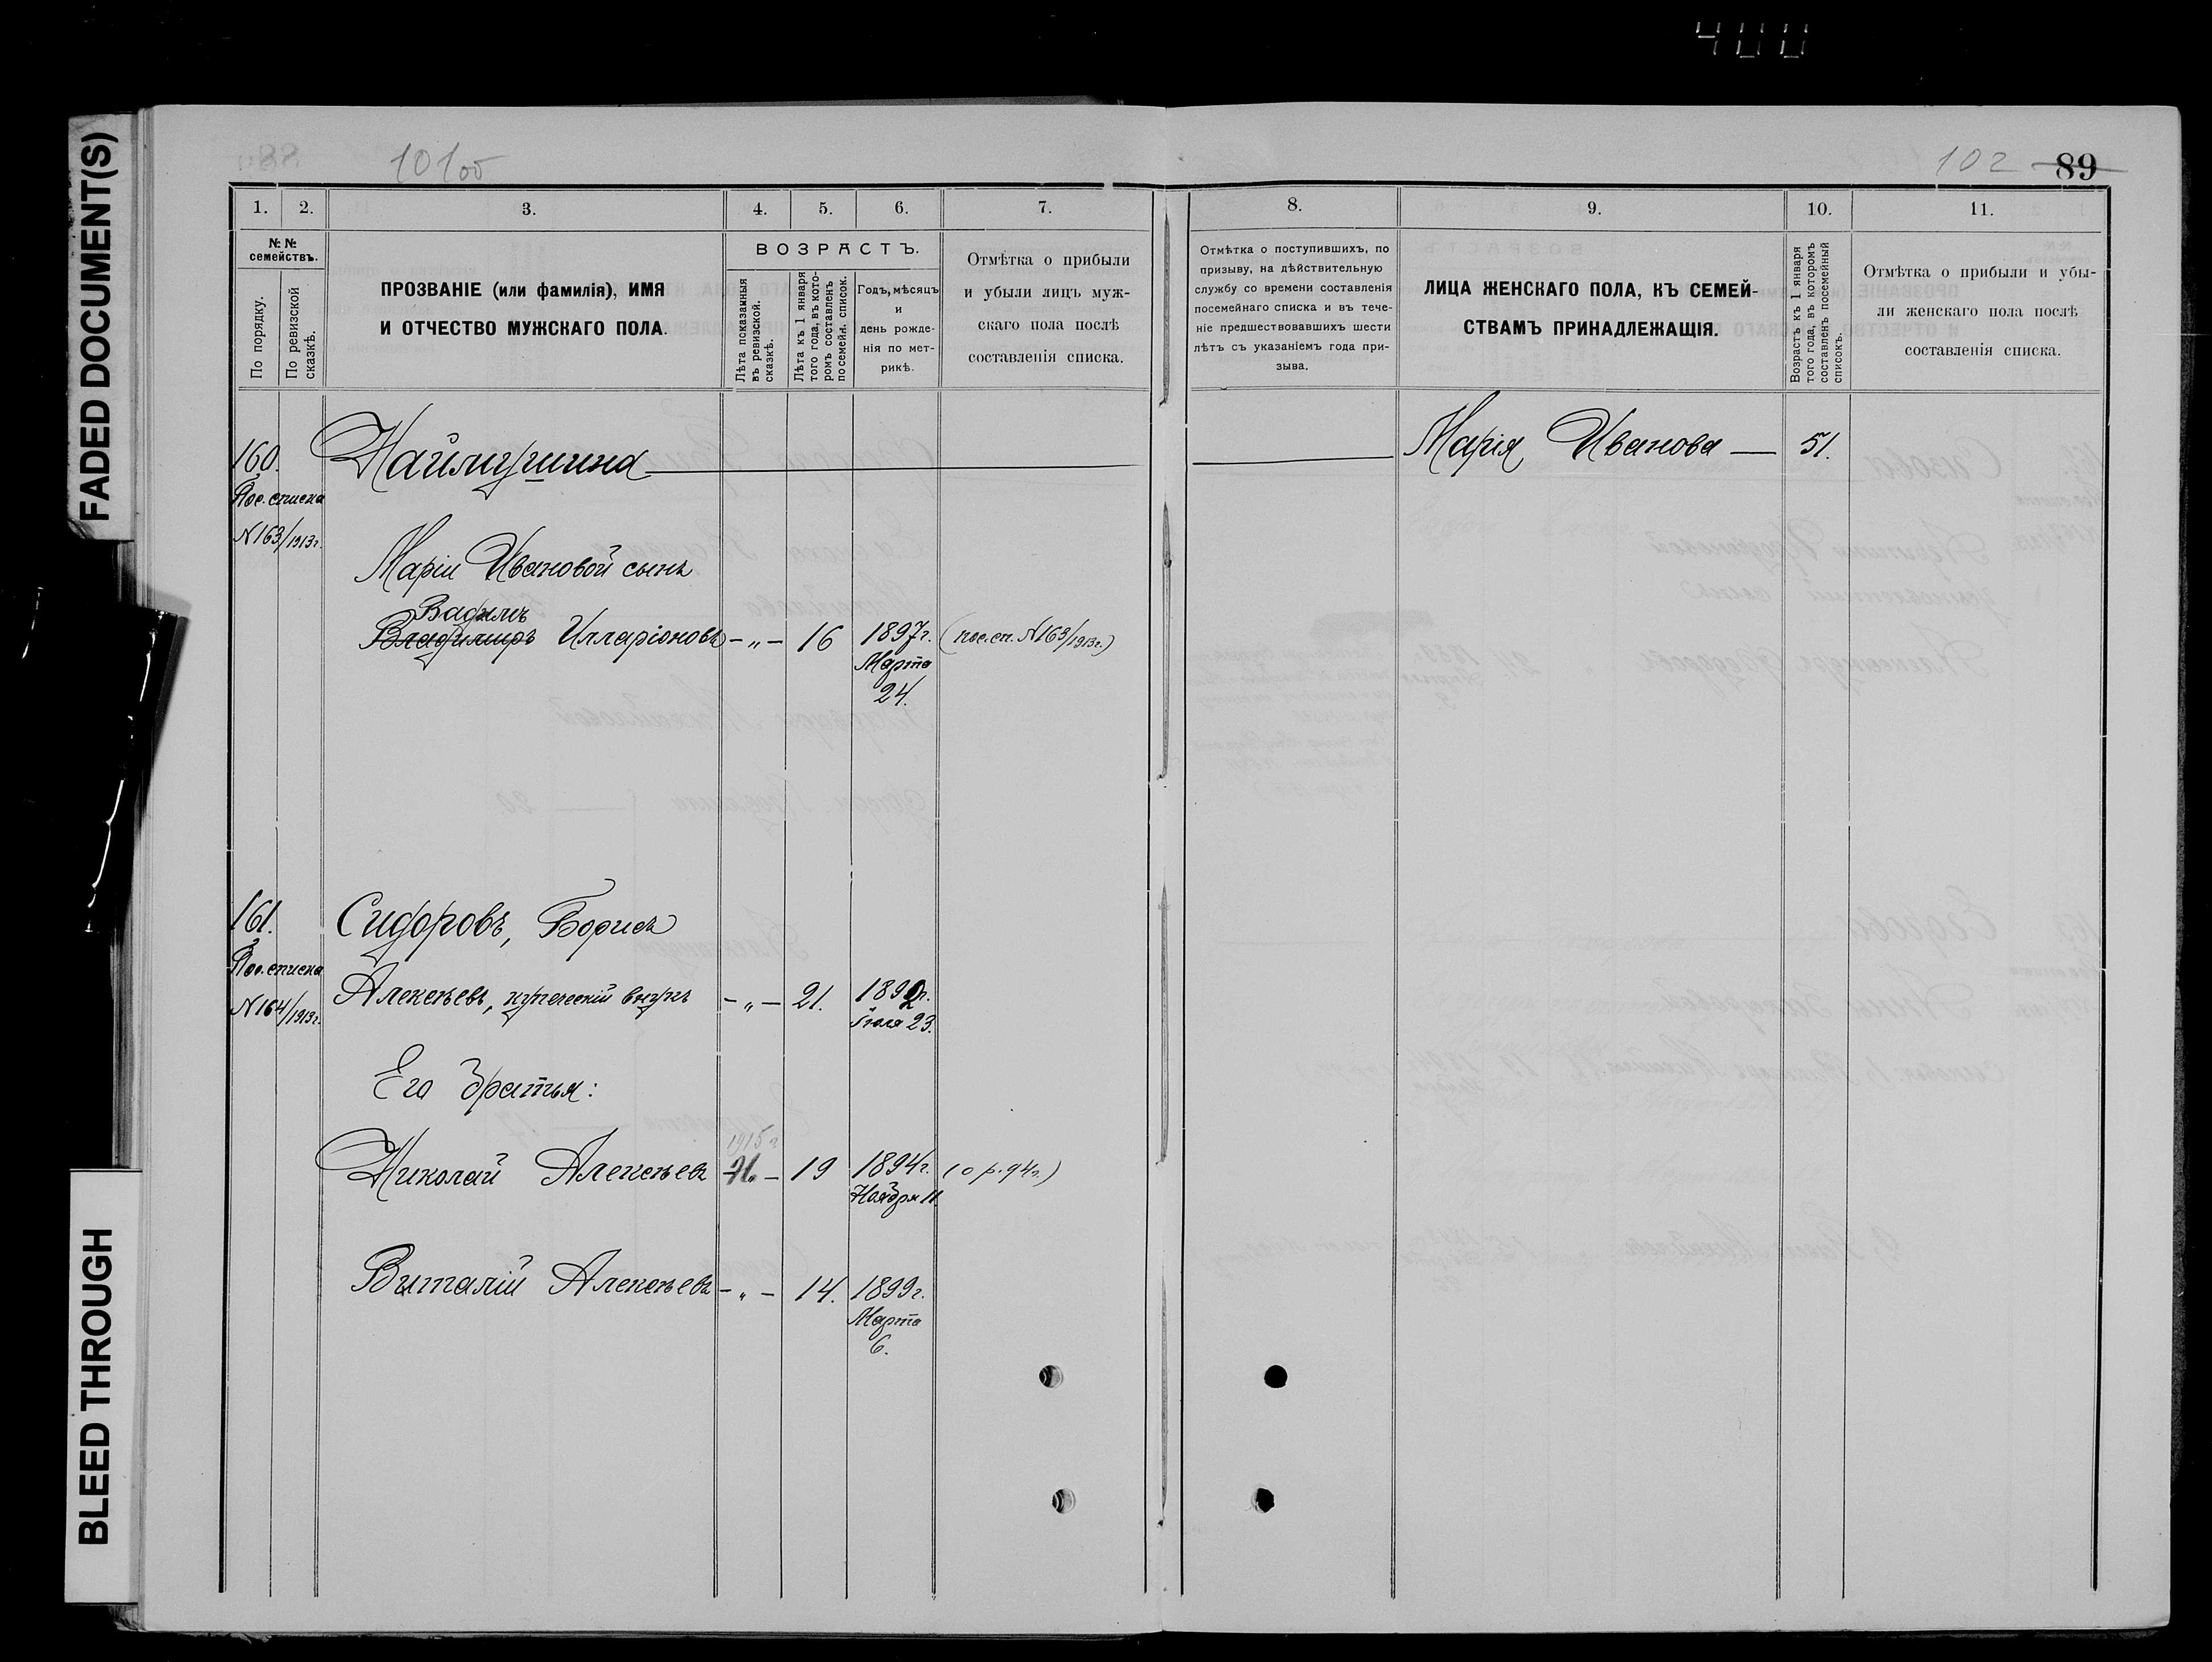 400
FADED DOCUMENT(S)
BLEED THROUGH
101об
102 89
1. 2. 3. 4. 5. 6. 7.
№ №
семействъ.
По порядку.
По ревизской
сказкѣ.
ПРОЗВАНІЕ (или фамилія), ИМЯ
И ОТЧЕСТВО МУЖСКАГО ПОЛА.
ВОЗРАСТЪ.
Лѣта показанныя
въ ревизской
сказкѣ.
Лѣта къ 1 января
того года, въ кото-
ромъ составленъ
посемейн. список.
Годъ, мѣсяцъ
и
день рожде-
нія по мет-
рикѣ.
Отмѣтка о прибыли
и убыли лицъ муж-
скаго пола послѣ
составленія списка.
8. 9. 10. 11.
Отмѣтка о поступившихъ, по
призыву, на дѣйствительную
службу со времени составленія
посемейнаго списка и въ тече-
ніе предшествовавшихъ шести
лѣтъ съ указаніемъ года при-
зыва.
ЛИЦА ЖЕНСКАГО ПОЛА, КЪ СЕМЕЙ-
СТВАМЪ ПРИНАДЛЕЖАЩІЯ.
Возрастъ къ 1 января
того года, въ которомъ
составленъ посемейный
списокъ.
Отмѣтка о прибыли и убы-
ли женскаго пола послѣ
составленія списка.
160. Наймушина Марія Иванова — 51.
Пос. списка
№163/1913г.
Маріи Ивановой сынъ
Вадимъ
Владимиръ Илларіоновъ — „ — 16 1897г. (пос. сп. №163/1913г.)
Марта
24.
161. Сидоровъ, Борисъ
Пос. списка
№164/1913г.
Алексѣевъ, купеческій внукъ — „ — 21. 1892г.
Іюля 23.
Его братья:
1915г
Николай Алексѣевъ 21 — 19 1894г. (о р. 94г.)
Ноября 11.
Виталій Алексѣевъ — „ — 14. 1899г.
Марта
6.